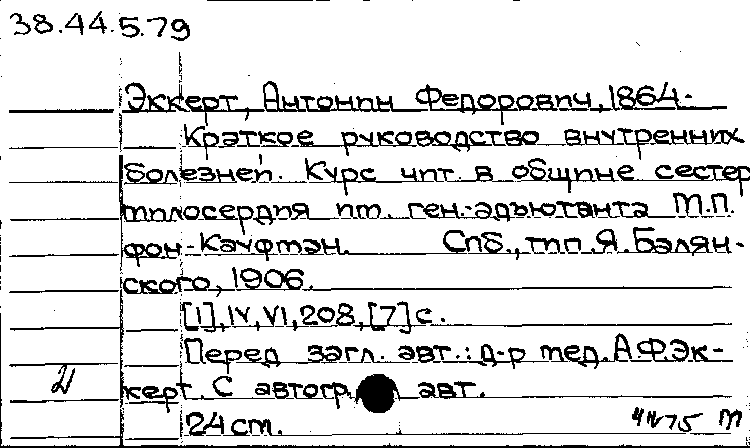 38.44.5.79
Эккерт, Антонин Федорович, 1864-
Краткое руководство внутренних
болезней. Курс чит. в общине сестер
милосердия им. ген.-адъютанта М.П.
фон-Кауфман. Спб., тип. Я. Балян-
ского, 1906.
[1], IV, VI, 208, [7] с.
Перед загл. авт.: д-р мед. А.Ф.Эк-
керт. С автогр. авт.
24 см.